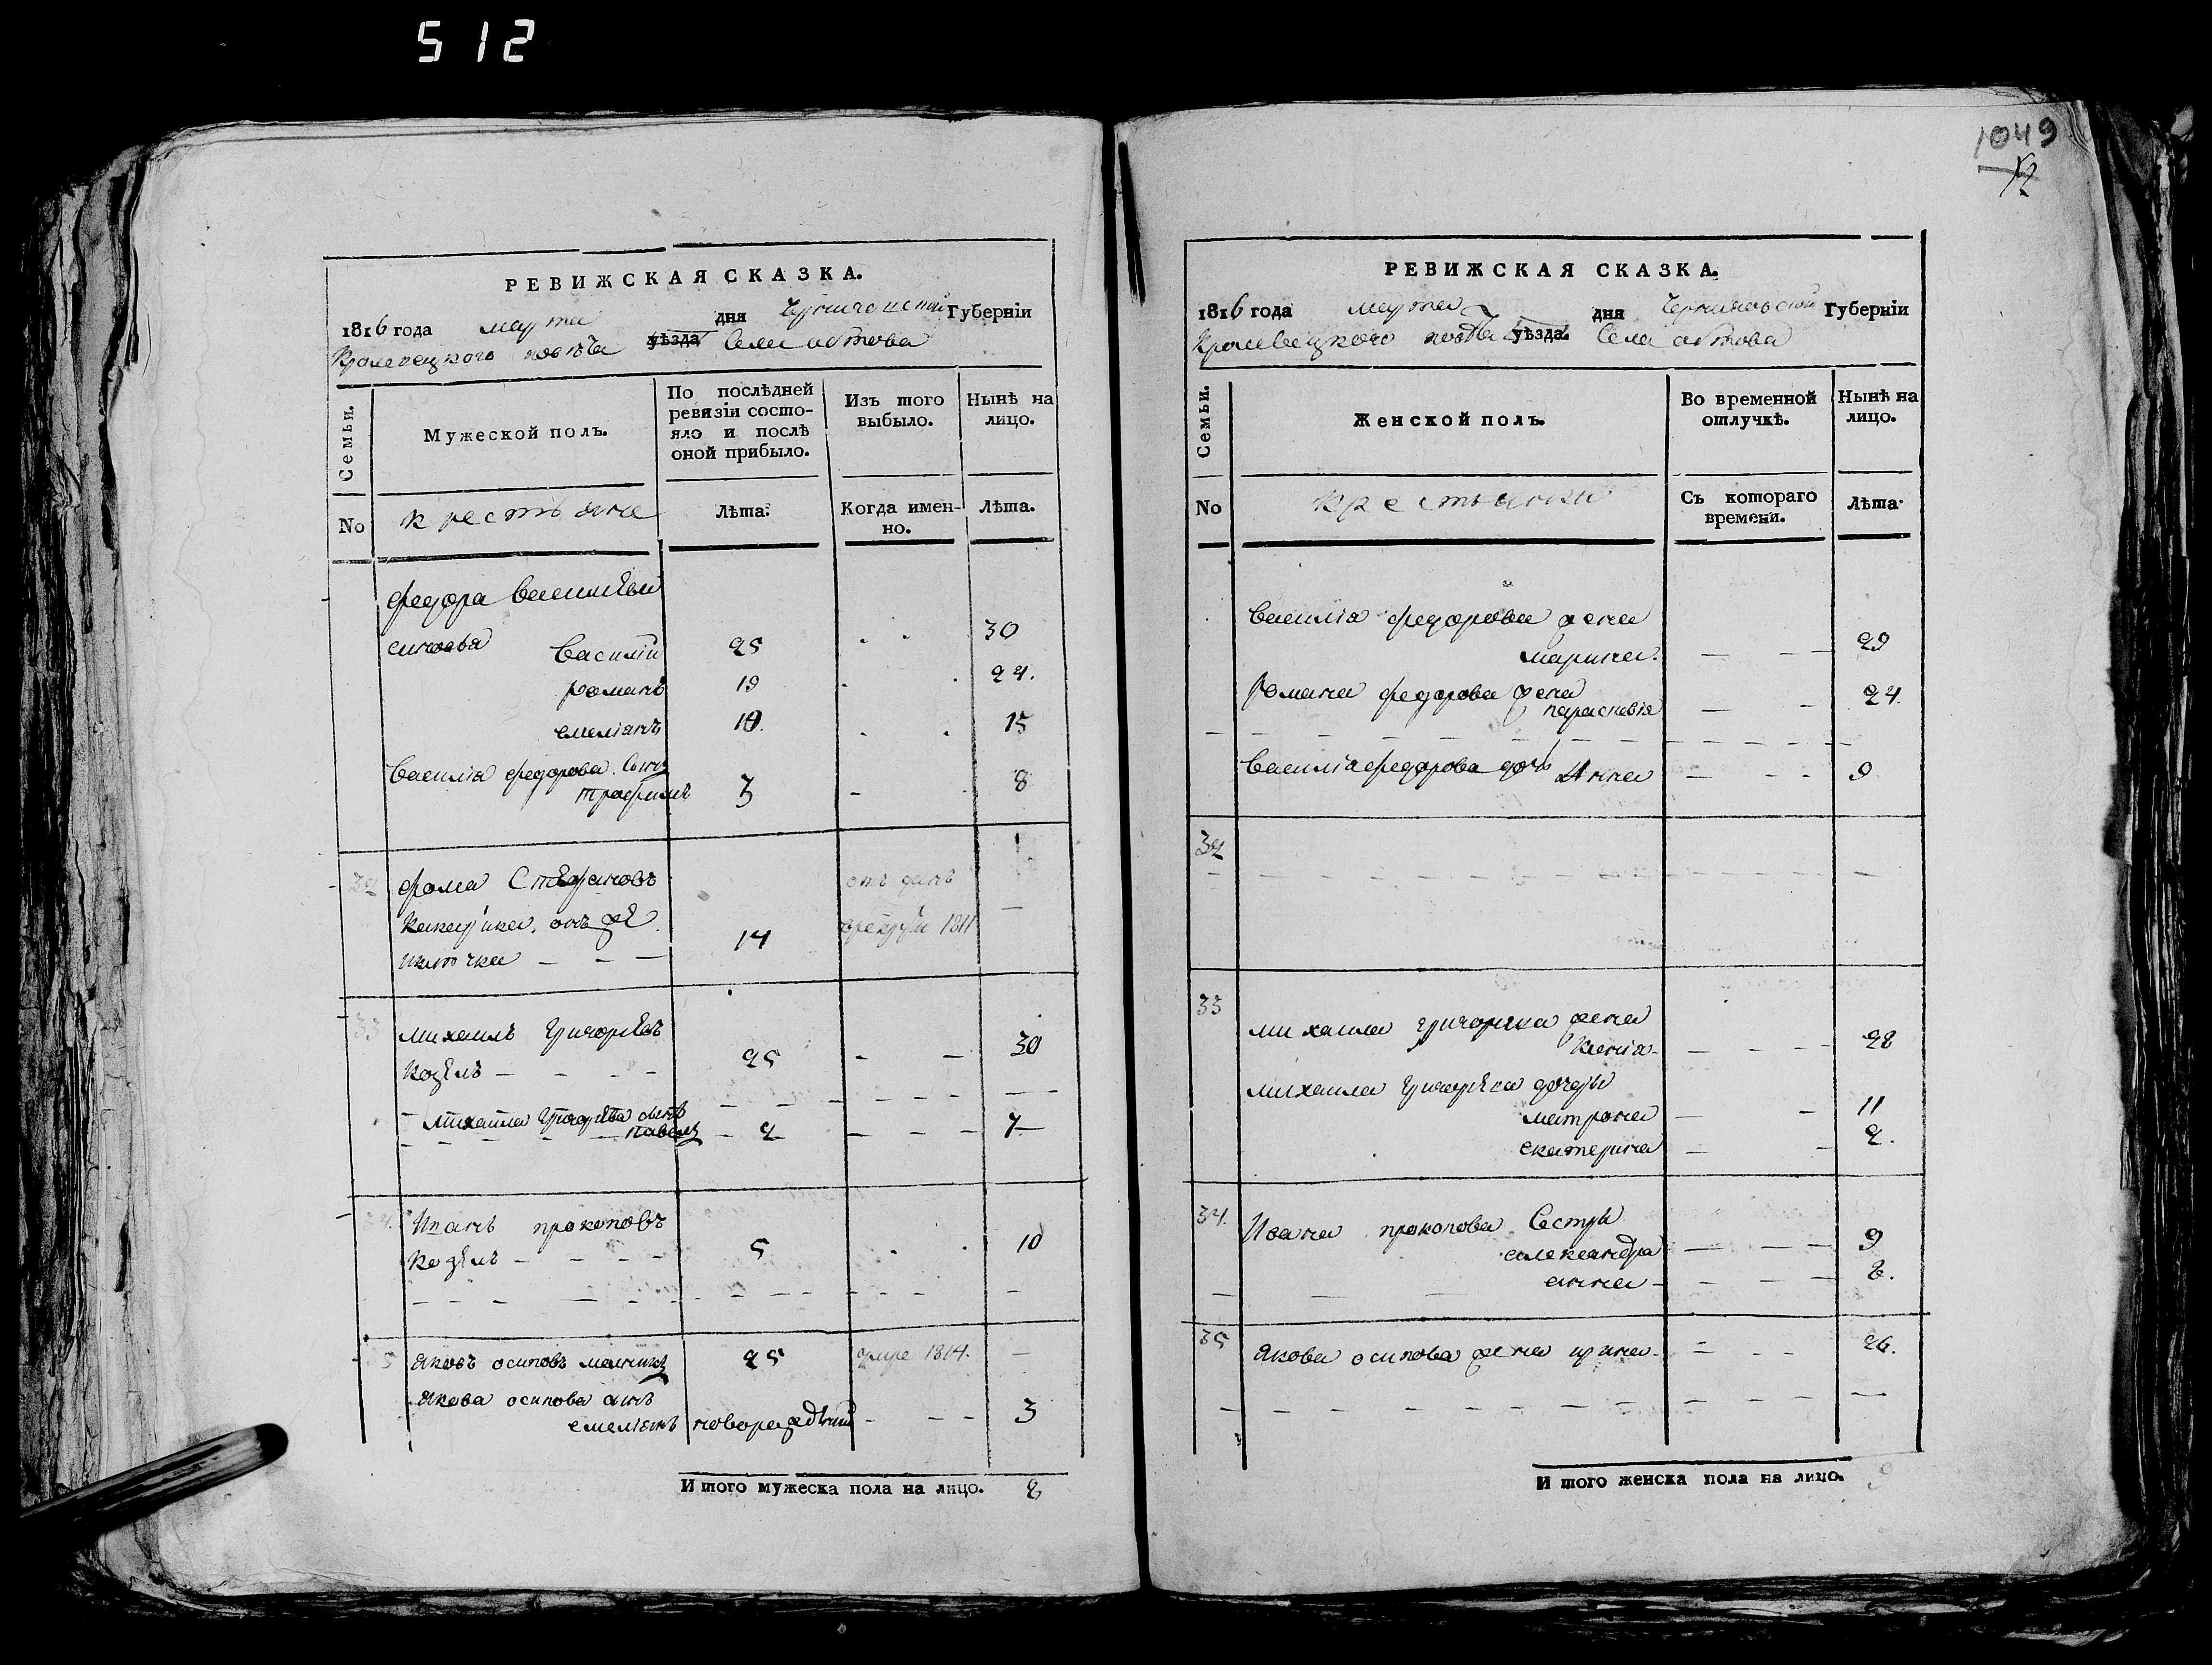 512
1049
РЕВИЖСКАЯ СКАЗКА.
1816 года марта дня Черниговской Губернїи
Кролевецкого повѣта уѣзда Села аѳтова
Семьи.
Мужеской полъ.
По послѣдней ревязїи состояло и послѣ оной прибыло.
Изъ того выбыло.
Нынѣ на лицо.
No
крестьяне
Лѣта.
Когда именно.
Лѣта.
федора васильева
синовья Василий 25 30
романъ 19 24.
емелїанъ 10. 15
василїя федорова Сынъ
трофимъ 3 - 8
32 фома Стефановъ отъ данъ
14 1811 —
33 михаилъ григорьевъ
козелъ - - - - 25 - - 30
михаила григорьева сынъ
павелъ - 2 - - - 7
34. Иванъ прокоповъ
козелъ - - - - 5 10
35 яковъ осиповъ мелникъ 25 умре 1814. —
якова осипова синъ
емелїянъ новорожденїй - - - 3
Итого мужеска пола на лицо. 8
РЕВИЖСКАЯ СКАЗКА.
1816 года марта дня Черниговской Губернїи
Кролевецкого повѣта уѣзда Села аѳтова
Семьи.
Женской полъ.
Во временной отлучкѣ.
Нынѣ на лицо.
No
крестьянки
Съ котораго времени.
Лѣта.
василїя федорова жена
марина. — — — 29
Романа федорова жена
параскевїя — - 24.
василїя федорова дочь Анна — - - 9
32
33 михаила григорева жена
28
михаила григорьева дочеры
матрона — - 11
екатерина — - 2.
34. Ивана прокопова Сестры
александра — — — 9
анна - - — — 8.
35 якова осипова жена ирина - - - - 26.
Итого женска пола на лицо. 9